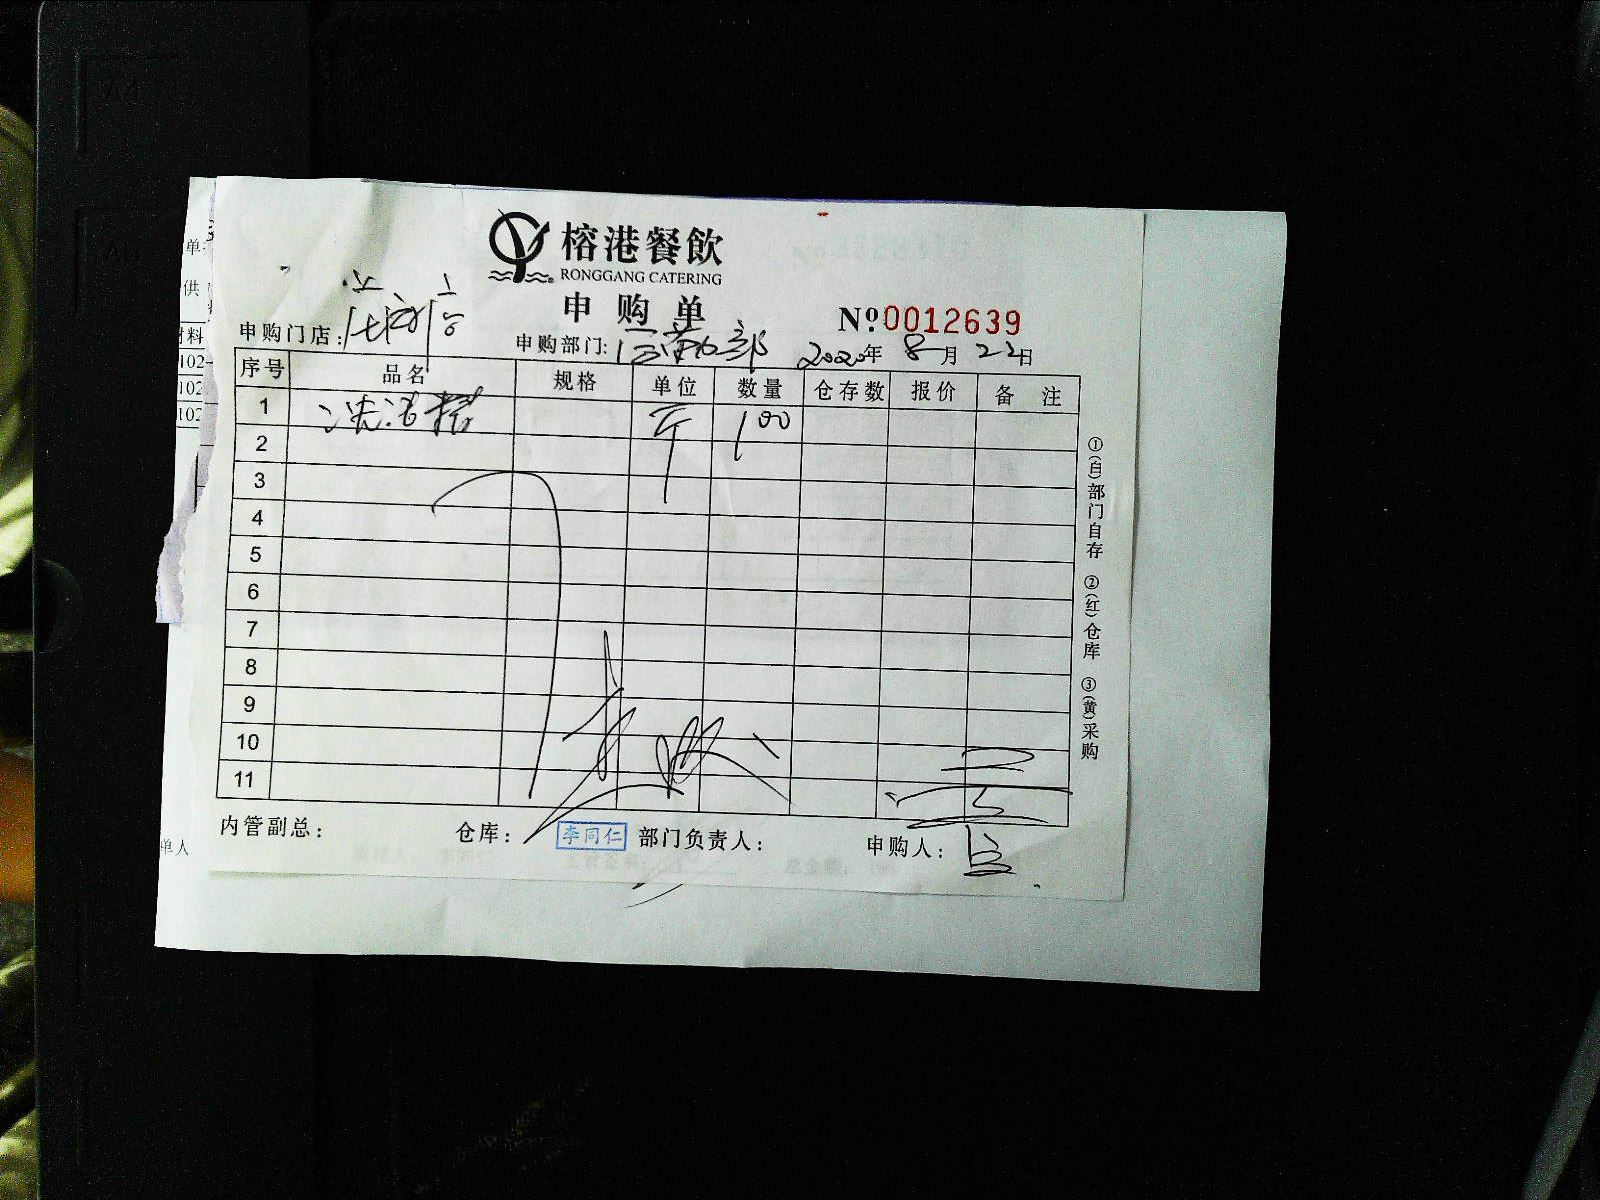 榕港餐飲
RONGGANG CATERING
申购单
№ 0012639
申购门店:
申购部门: 部 2020年 8月 22日
序号 品名 规格 单位 数量 仓存数 报价 备注
1 斤 100
2
3
4
5
6
7
8
9
10
11
内管副总: 仓库: 李同仁 部门负责人: 申购人:
①(白)部门自存 ②(红)仓库 ③(黄)采购
单
供
材料
102
102
102
单人